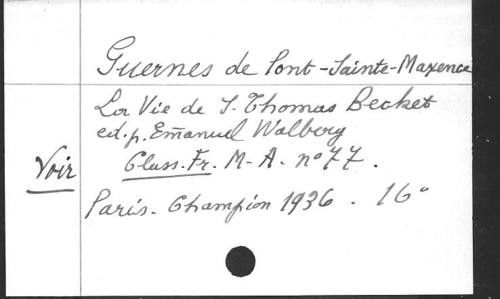 Guernes de Pont-Sainte-Maxence
La Vie de S. Thomas Becket
ed. p. Emanuel Walberg
Voir Class. Fr. M-A. n° 77.
Paris. Champion 1936. 16°